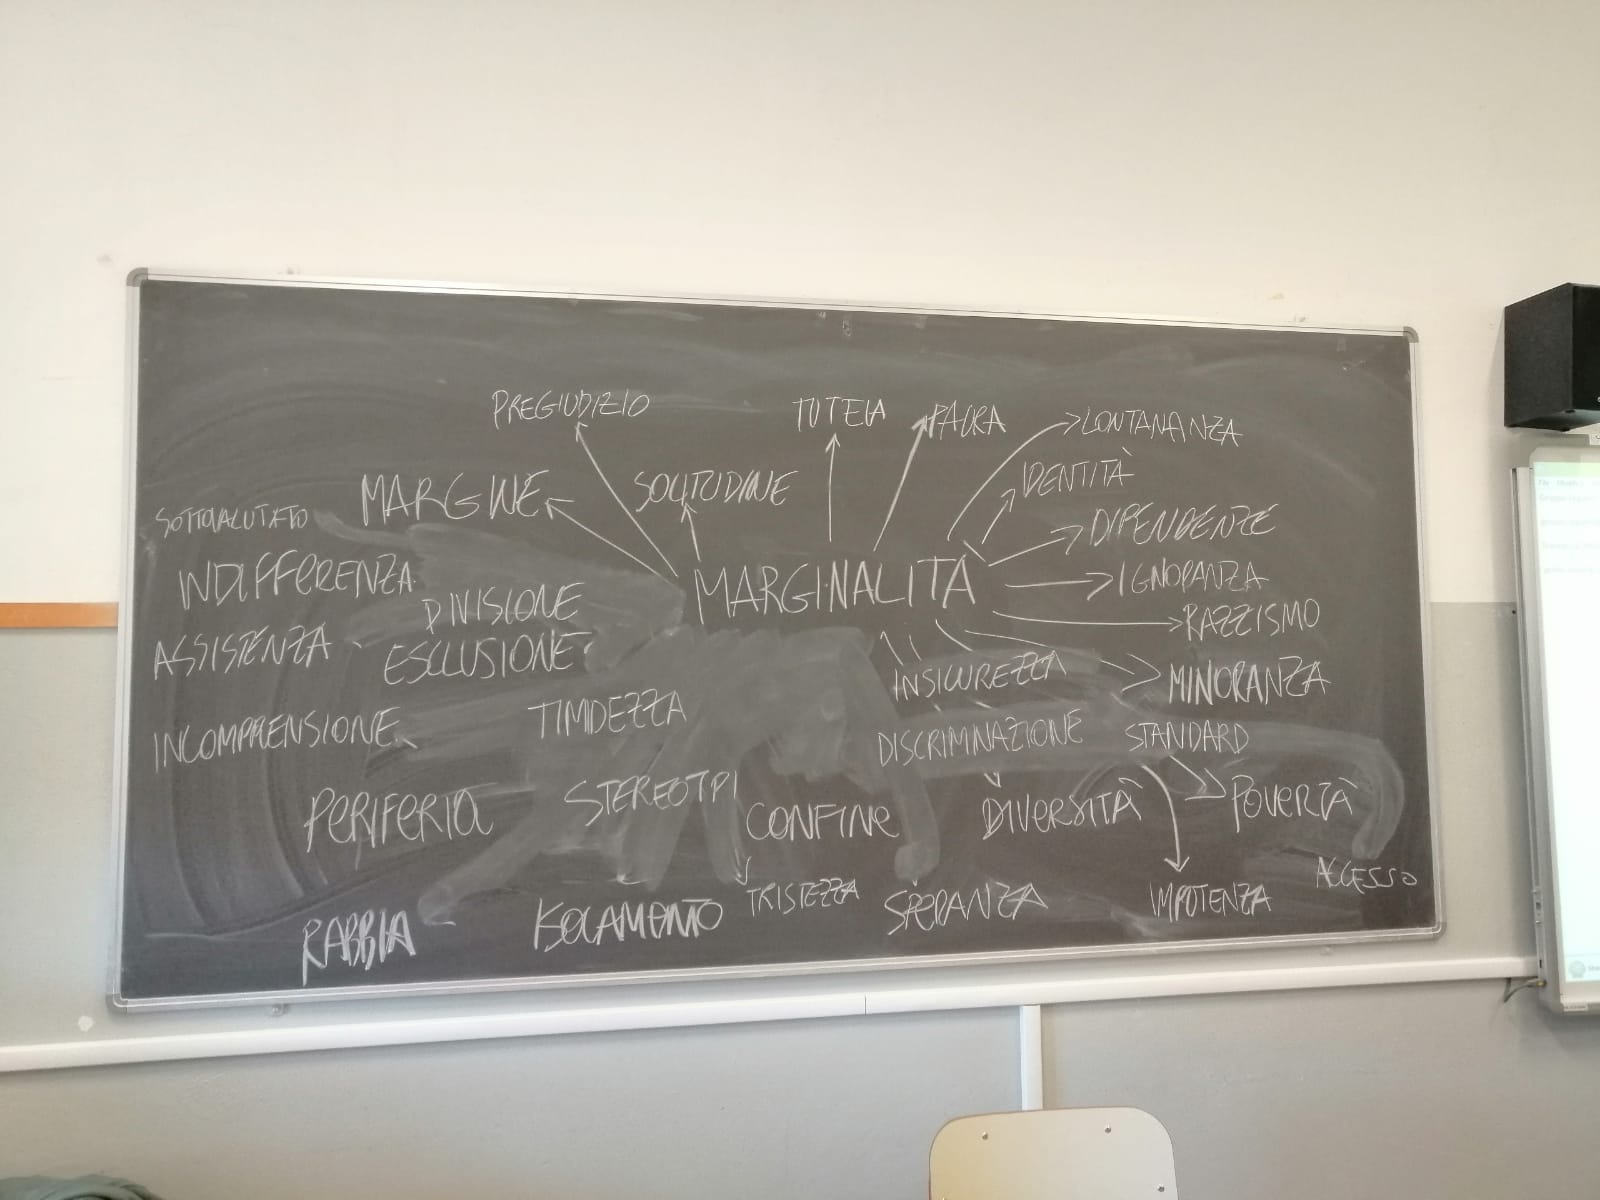 PREGIUDIZIO
TUTELA
PAURA
LONTANANZA
MARGINE
SOLITUDINE
IDENTITÀ
SOTTOVALUTATO
DIPENDENZE
INDIFFERENZA
MARGINALITÀ
IGNORANZA
DIVISIONE
RAZZISMO
ASSISTENZA
ESCLUSIONE
INSICUREZZA
MINORANZA
INCOMPRENSIONE
TIMIDEZZA
DISCRIMINAZIONE
STANDARD
PERIFERIA
STEREOTPI
CONFINE
DIVERSITÀ
POVERTÀ
ACCESSO
RABBIA
ISOLAMENTO
TRISTEZZA
SPERANZA
IMPOTENZA